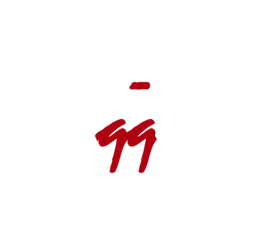 -
99